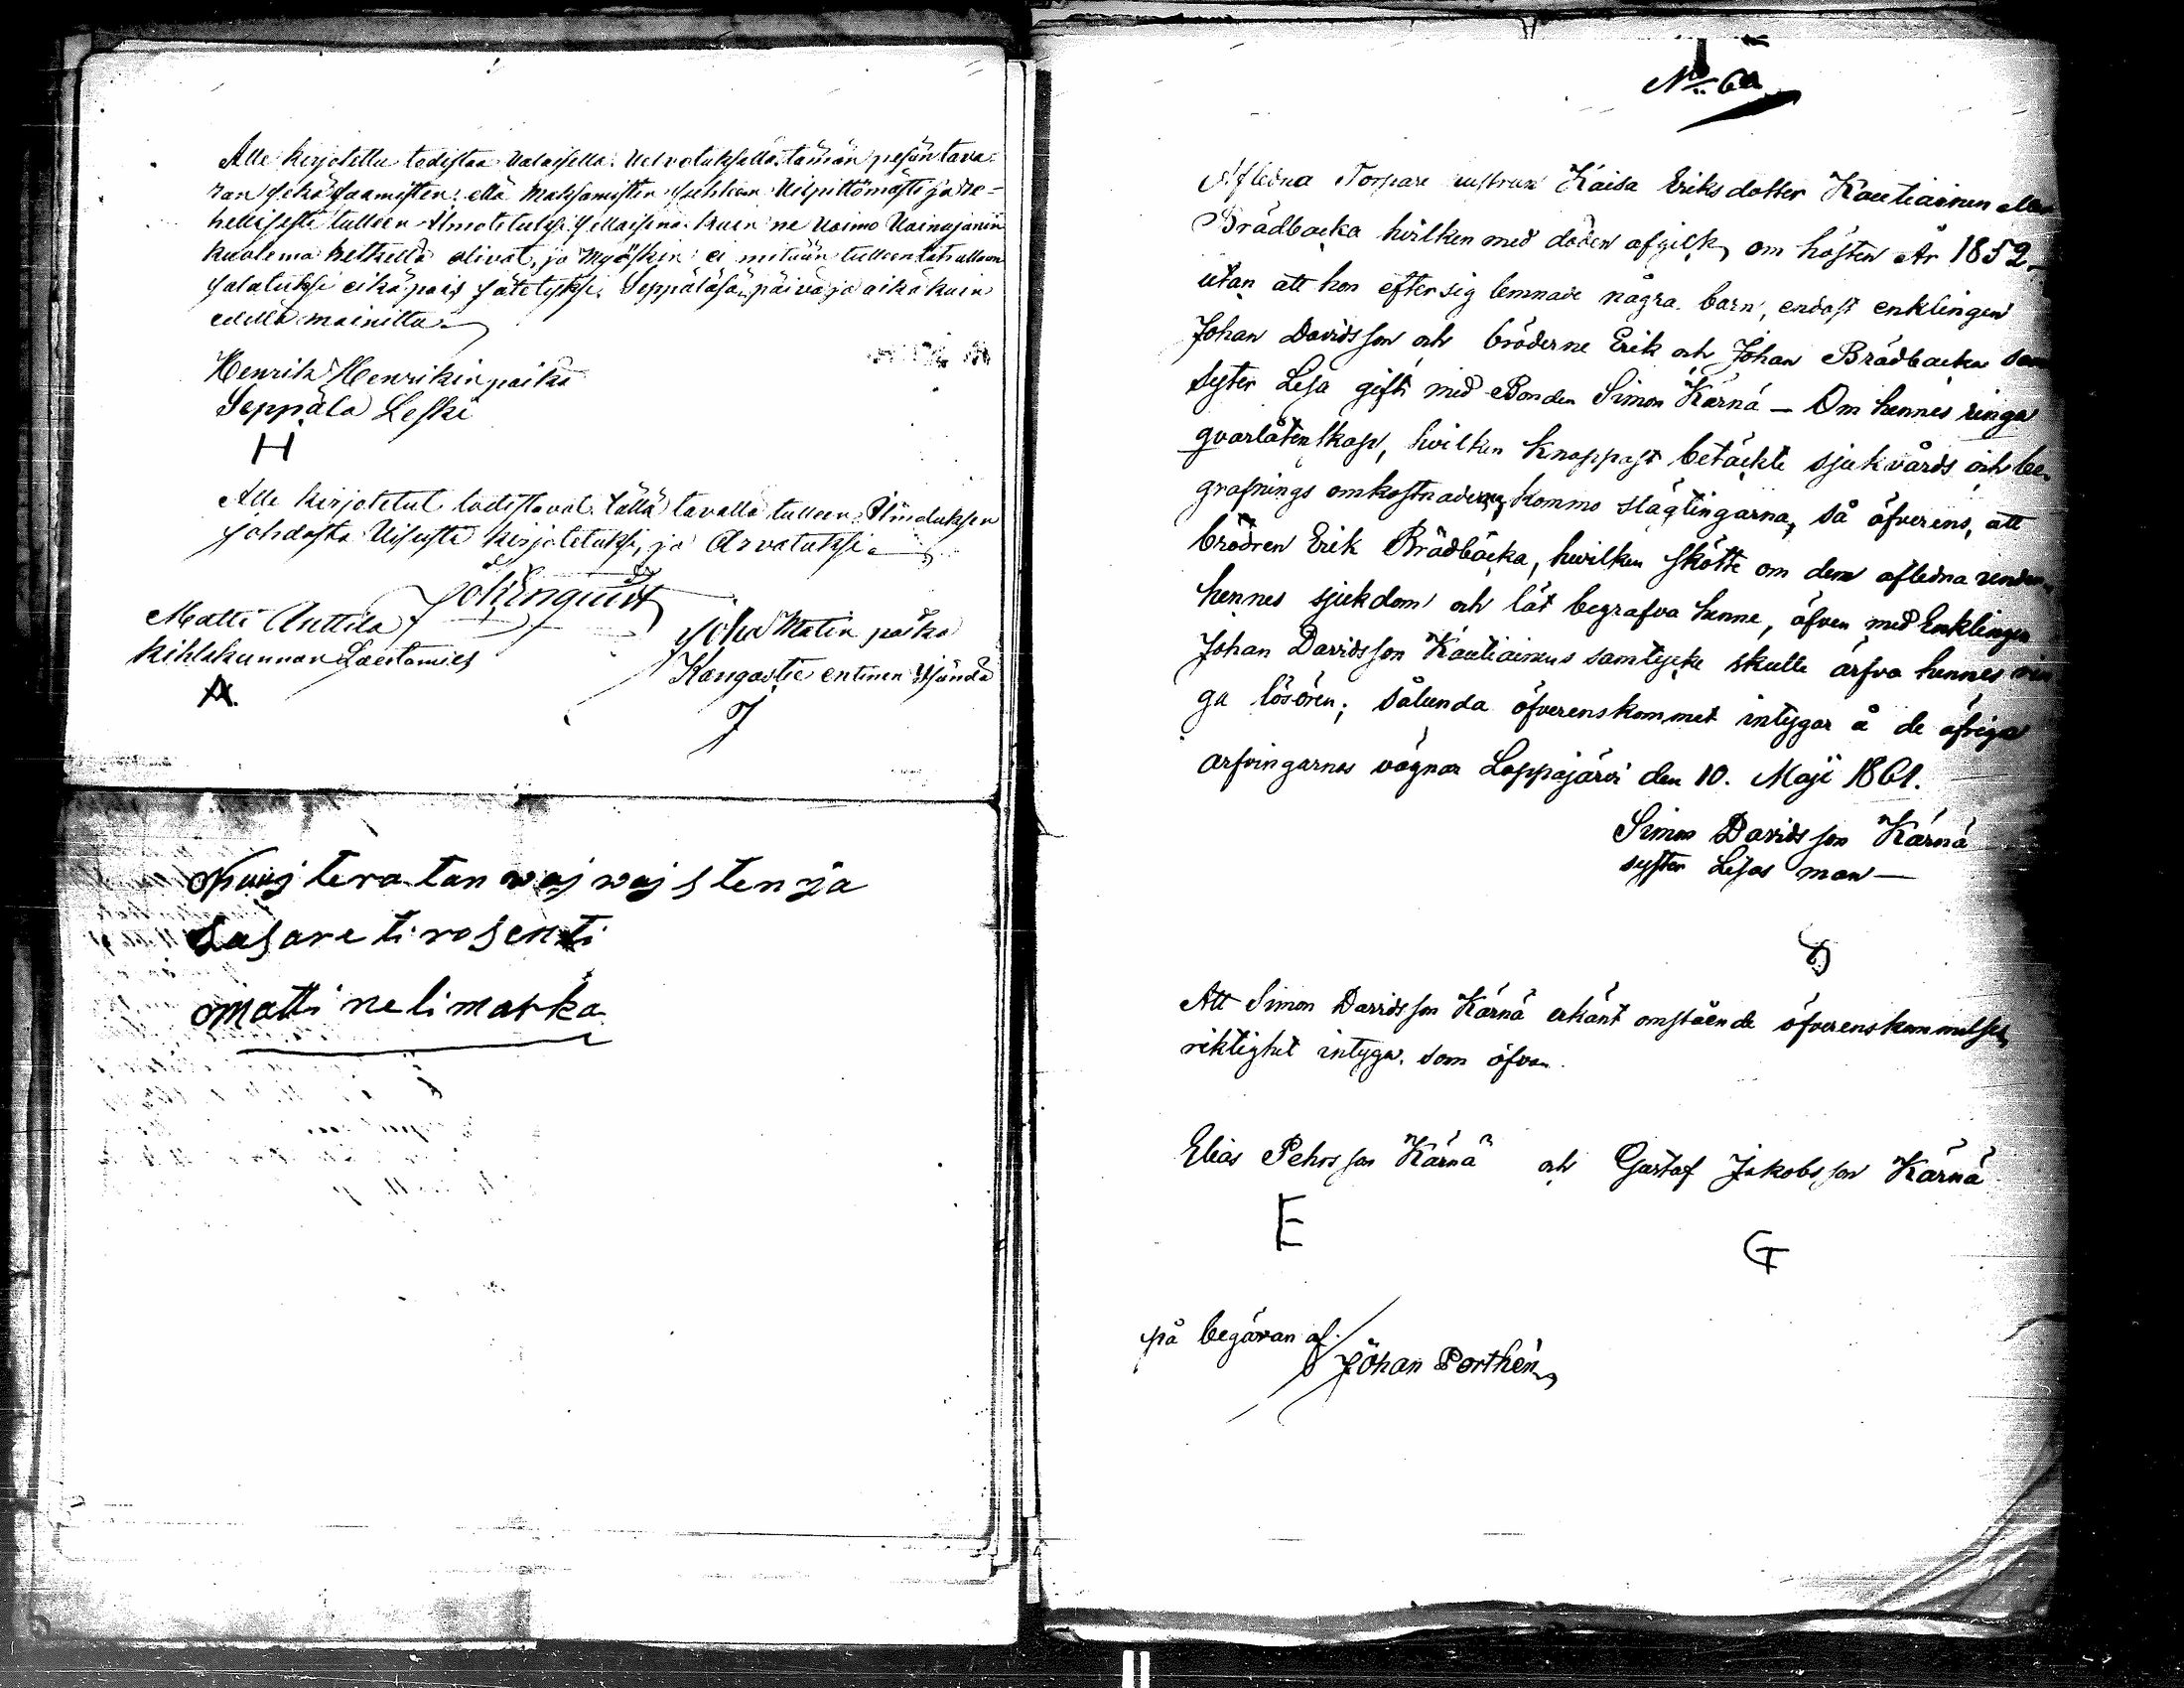 Alle kirjotettu todistaa Valaisella Velvotuksella tämän pesän tava-
ran sekä saamisten että Maksamisten puhtaan Vilpittömästi ja re-
hellisesti tulleen Ilmotetuksi sellaisena kuin ne Vaimo Vainajanin
kuolema hetkellä olivat, ja Myöskin ei mitään tulleen
salatuksi eikä pois jätetyksi, Seppälässä, päivä ja aika kuin
edellä mainittu
Henrik Henrikin poika
Seppälä Leski
H
Alle kirjotetut todistavat tällä tavalla tulleen Ilmotuksen
johdosta Visusti kirjotetuksi, ja Arvatuksi
J Okenquist
Matti Anttila
Kihlakunnan Lautamies
A.
Joha Matin poika
Kangastie entinen Isäntä
J
waj wajsten ja
Lasareti rosenti
Matti nelimarka
No 60
Afledna Torpare hustrun Kaisa Eriksdotter Kautiainen eller
Brådbacka hvilken med döden afgick om hösten År 1852
utan att hon efter sig lemnade några barn, endast enklingen
Johan Davidsson och bröderne Erik och Johan Brådbacka samt
syster Lisa gift med Bonden Simon Kärnä — Om hennes ringa
qvarlåtenskap, hvilken knappast betäckte sjukvårds och be-
grafnings omkostnaderna, kommo slägtingarna, så öfverens, att
brodren Erik Brådbacka, hvilken skötte om den afledna under
hennes sjukdom och lät begrafva henne, äfven med Enklingen
Johan Davidsson Kautiainens samtycke skulle ärfva hennes rin
ga lösören; sålunda öfverenskommet intygar å de öfriga
arfvingarnes vägnar Lappajärvi den 10. Maji 1861.
Simon Davidsson Kärnä
syster Lisas man —
Att Simon Davidsson Kärnä erkänt omstående öfverenskommelses
riktighet intyga. som ofvan.
Elias Pehrsson Kärnä och Gustaf Jakobsson Kärnä
E G
på begäran af
Johan Porthén